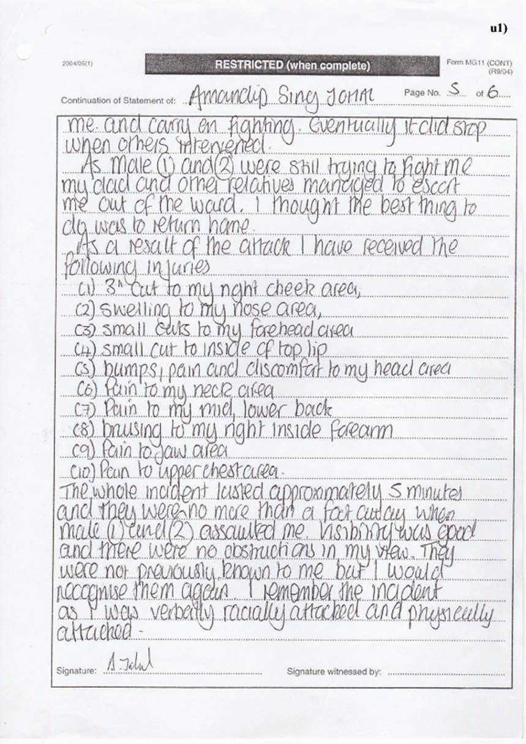 u1)
2004/05(1)
RESTRICTED (when complete)
Form MG11 (CONT)
(R9/04)
Continuation of Statement of: Amandip Sing Johal
Page No. 5 of 6
me. and carry on fighting. Eventually it did stop
when others intervened.
As male (1) and (2) were still trying to fight me
my dad and other relatives managed to escort
me out of the ward. I thought the best thing to
do was to return home.
As a result of the attack I have received the
following injuries
(1) 3" cut to my right cheek area,
(2) swelling to my nose area,
(3) small cuts to my forehead area
(4) small cut to inside of top lip
(5) bumps, pain and discomfort to my head area
(6) Pain to my neck area
(7) Pain to my mid, lower back
(8) bruising to my right inside forearm
(9) Pain to jaw area
(10) Pain to upper chest area.
The whole incident lasted approximately 5 minutes
and they were no more than a foot away when
male (1) and (2) assaulted me. Visibility was good
and there were no obstructions in my view. They
were not previously known to me but I would
recognise them again. I remember the incident
as I was verbally racially attacked and physically
attacked.
Signature: A Johal
Signature witnessed by: